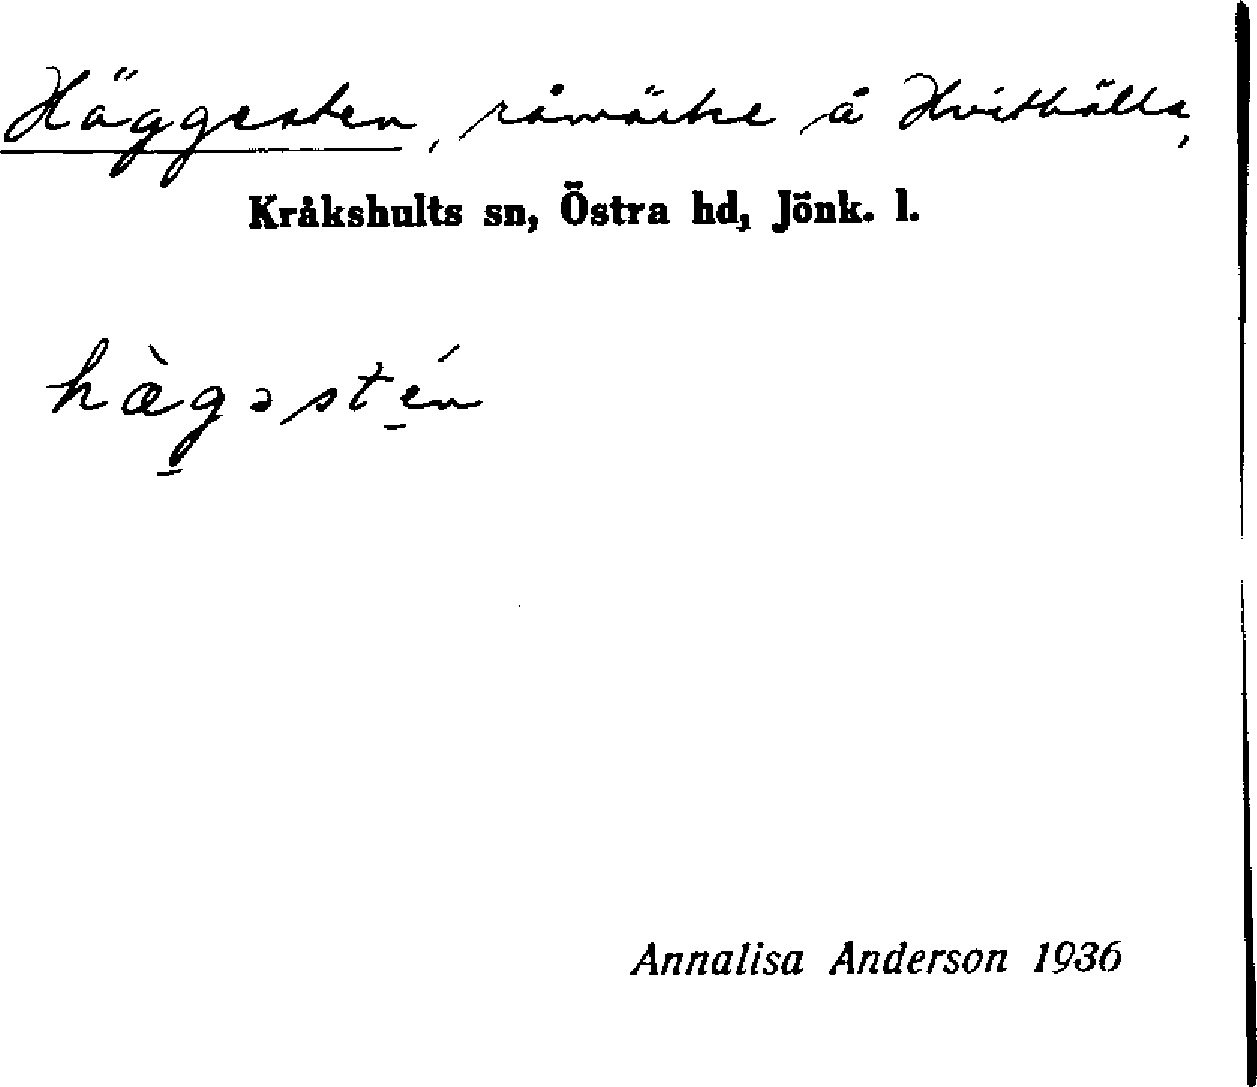 Häggesten, råmärke å Hvithälla,
Kråkshults sn, Östra hd, Jönk. l.
hæ̀gəstén
Annalisa Anderson 1936